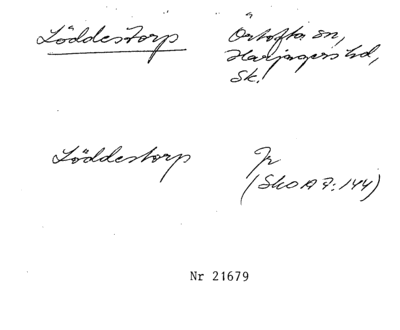 Löddestorp Örtofta sn,
Harjagers hd,
Sk.
Löddestorp Jr
(SkO A 7:144)
Nr 21679